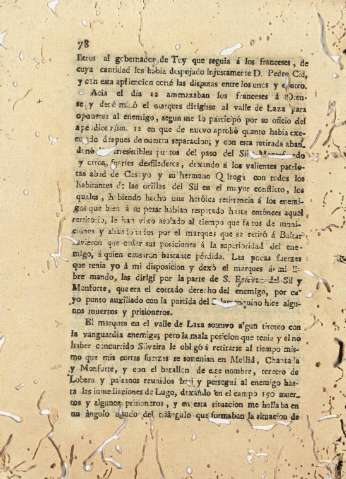 78
letras al gobernador de Tuy que seguia á los franceses, de
cuya cantidad les habia despojado injustamente D. Pedro Cid,
y con esta aplicacion cesó las disputas entre los unos y
Acia el dia 12 amenazaban los franceses á
se, y determinó el marques dirigirse al valle de Laza para
oponerse al enemigo, segun me lo participó por su oficio del
apendice núm. 12 en que de nuevo aprobó quanto habia exe-
cutado despues de nuestra separacion; y con esta retirada aban-
donó irresistibles puntos del paso del Sil
y otros fuertes desfiladeros, dexando á los valientes patrio-
tas abad de Casoyo y su hermano Quiroga con todos los
habitantes de las orillas del Sil en el mayor conflicto, los
quales, habiendo hecho una heróica resistencia á los enemi-
gos que bien á su pesar habian respetado hasta entonces aquel
territorio, le han visto asolado al tiempo que faltos de muni-
ciones y abandonados por el marques que se retiró á Baltar
tuvieron que ceder sus posiciones á la superioridad del ene-
migo, á quien causaron bastante pérdida. Las pocas fuerzas
que tenia yo á mi disposicion y dexó el marques á mi li-
bre mando, las dirigí por la parte de S. Estevan del Sil y
Monforte, que era el costado derecho del enemigo, por cu-
yo punto auxiliado con la partida del hice algu-
nos muertos y prisioneros.
El marques en el valle de Laza sostuvo algun tiroteo con
la vanguardia enemiga; pero la mala posicion que tenia y el no
haber concurrido Silveira le obligó á retirarse al tiempo mis-
mo que mis cortas fuerzas se sostenian en Mellid, Chantada
y Monforte, y con el batallon de este nombre, tercero de
Lobera y paisanos reunidos batí y perseguí al enemigo has-
ta las inmediaciones de Lugo, dexando en el campo 150 muer-
tos y algunos prisioneros, y en esta situacion me hallaba en
un ángulo agudo del triángulo que formaban la situacion de